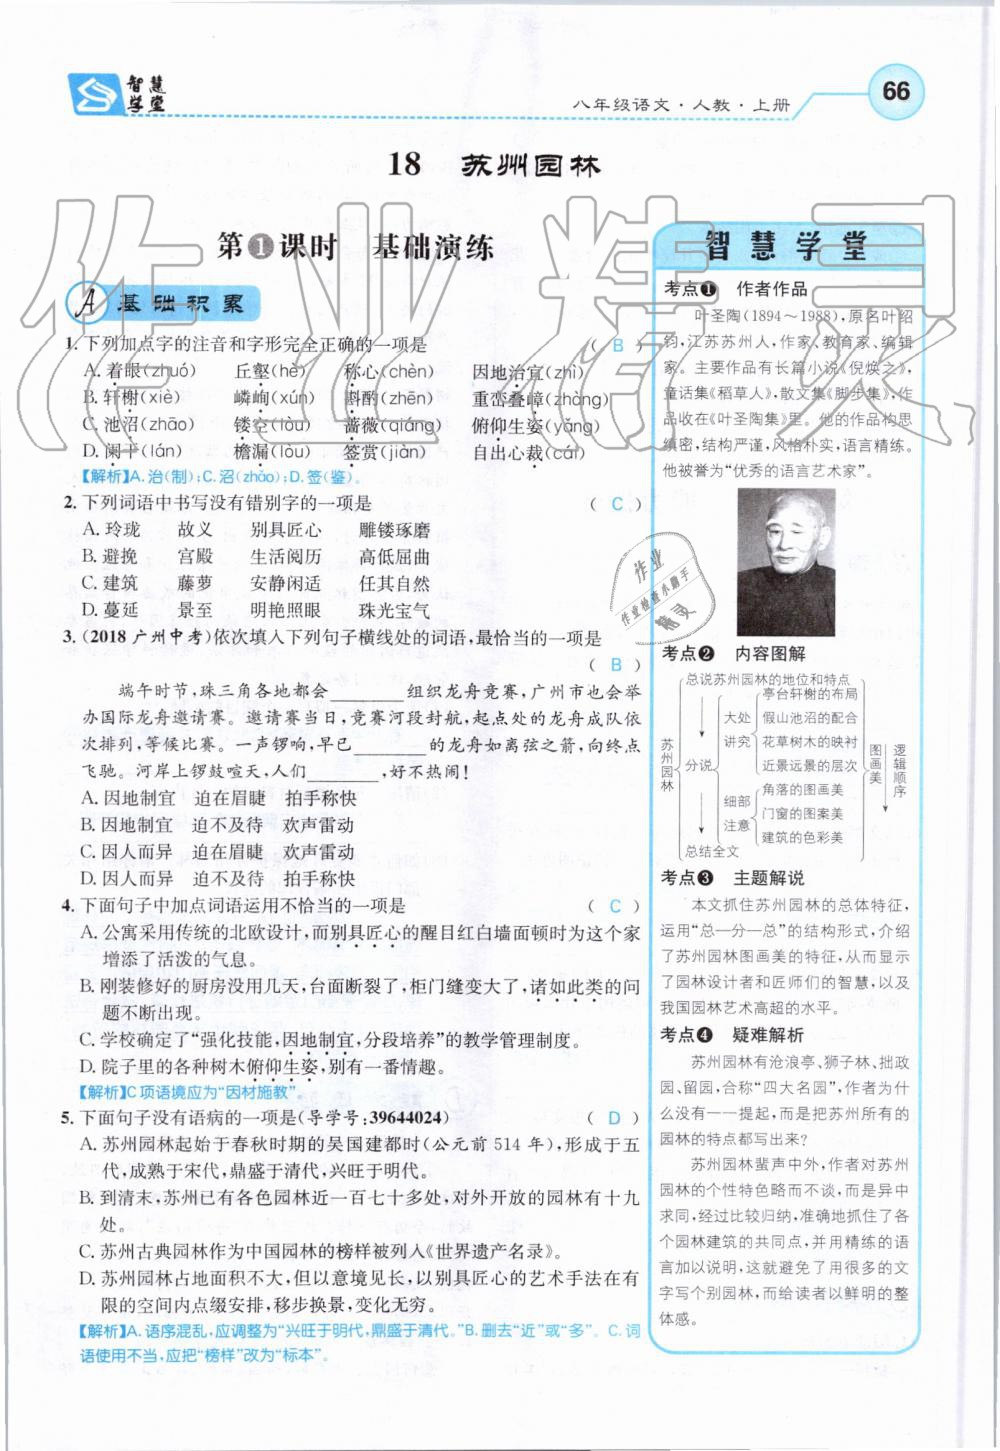 智慧
学堂
八年级语文·人教·上册
66
18 苏州园林
第1课时 基础演练
A 基础积累
1. 下列加点字的注音和字形完全正确的一项是 ( B )
A. 着眼(zhuó) 丘壑(hè) 称心(chèn) 因地治宜(zhì)
B. 轩榭(xiè) 嶙峋(xún) 斟酌(zhēn) 重峦叠嶂(zhàng)
C. 池沼(zhāo) 镂空(lòu) 蔷薇(qiáng) 俯仰生姿(yǎng)
D. 阑干(lán) 檐漏(lòu) 签赏(jiàn) 自出心裁(cái)
【解析】A. 治(制);C. 沼(zhǎo);D. 签(鉴)。
2. 下列词语中书写没有错别字的一项是 ( C )
A. 玲珑 故义 别具匠心 雕镂琢磨
B. 避挽 宫殿 生活阅历 高低屈曲
C. 建筑 藤萝 安静闲适 任其自然
D. 蔓延 景至 明艳照眼 珠光宝气
3. (2018 广州中考)依次填入下列句子横线处的词语,最恰当的一项是
( B )
端午时节,珠三角各地都会________组织龙舟竞赛,广州市也会举
办国际龙舟邀请赛。邀请赛当日,竞赛河段封航,起点处的龙舟成队依
次排列,等候比赛。一声锣响,早已________的龙舟如离弦之箭,向终点
飞驰。河岸上锣鼓喧天,人们________,好不热闹!
A. 因地制宜 迫在眉睫 拍手称快
B. 因地制宜 迫不及待 欢声雷动
C. 因人而异 迫在眉睫 欢声雷动
D. 因人而异 迫不及待 拍手称快
4. 下面句子中加点词语运用不恰当的一项是 ( C )
A. 公寓采用传统的北欧设计,而别具匠心的醒目红白墙面顿时为这个家
增添了活泼的气息。
B. 刚装修好的厨房没用几天,台面断裂了,柜门缝变大了,诸如此类的问
题不断出现。
C. 学校确定了“强化技能,因地制宜,分段培养”的教学管理制度。
D. 院子里的各种树木俯仰生姿,别有一番情趣。
【解析】C项语境应为“因材施教”。
5. 下面句子没有语病的一项是(导学号:39644024) ( D )
A. 苏州园林起始于春秋时期的吴国建都时(公元前 514 年),形成于五
代,成熟于宋代,鼎盛于清代,兴旺于明代。
B. 到清末,苏州已有各色园林近一百七十多处,对外开放的园林有十九
处。
C. 苏州古典园林作为中国园林的榜样被列入《世界遗产名录》。
D. 苏州园林占地面积不大,但以意境见长,以别具匠心的艺术手法在有
限的空间内点缀安排,移步换景,变化无穷。
【解析】A. 语序混乱,应调整为“兴旺于明代,鼎盛于清代。”B. 删去“近”或“多”。C. 词
语使用不当,应把“榜样”改为“标本”。
智慧学堂
考点1 作者作品
叶圣陶(1894～1988),原名叶绍
钧,江苏苏州人,作家、教育家、编辑
家。主要作品有长篇小说《倪焕之》,
童话集《稻草人》,散文集《脚步集》,作
品收在《叶圣陶集》里。他的作品构思
缜密,结构严谨,风格朴实,语言精练。
他被誉为“优秀的语言艺术家”。
考点2 内容图解
苏州园林
总说苏州园林的地位和特点
分说
大处
讲究
亭台轩榭的布局
假山池沼的配合
花草树木的映衬
近景远景的层次
细部
注意
角落的图画美
门窗的图案美
建筑的色彩美
总结全文
图画美
逻辑顺序
考点3 主题解说
本文抓住苏州园林的总体特征,
运用“总—分—总”的结构形式,介绍
了苏州园林图画美的特征,从而显示
了园林设计者和匠师们的智慧,以及
我国园林艺术高超的水平。
考点4 疑难解析
苏州园林有沧浪亭、狮子林、拙政
园、留园,合称“四大名园”,作者为什
么没有一一提起,而是把苏州所有的
园林的特点都写出来?
苏州园林蜚声中外,作者对苏州
园林的个性特色略而不谈,而是异中
求同,经过比较归纳,准确地抓住了各
个园林建筑的共同点,并用精练的语
言加以说明,这就避免了用很多的文
字写个别园林,而给读者以鲜明的整
体感。
作业精灵
作业
作业检查小助手
精灵